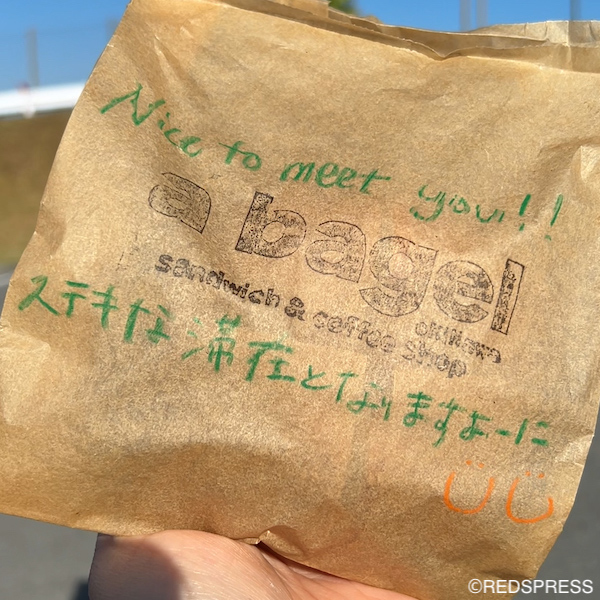 Nice to meet you!!
a bagel
okinawa
sandwich & coffee shop
ステキな滞在となりますよーに
©REDSPRESS